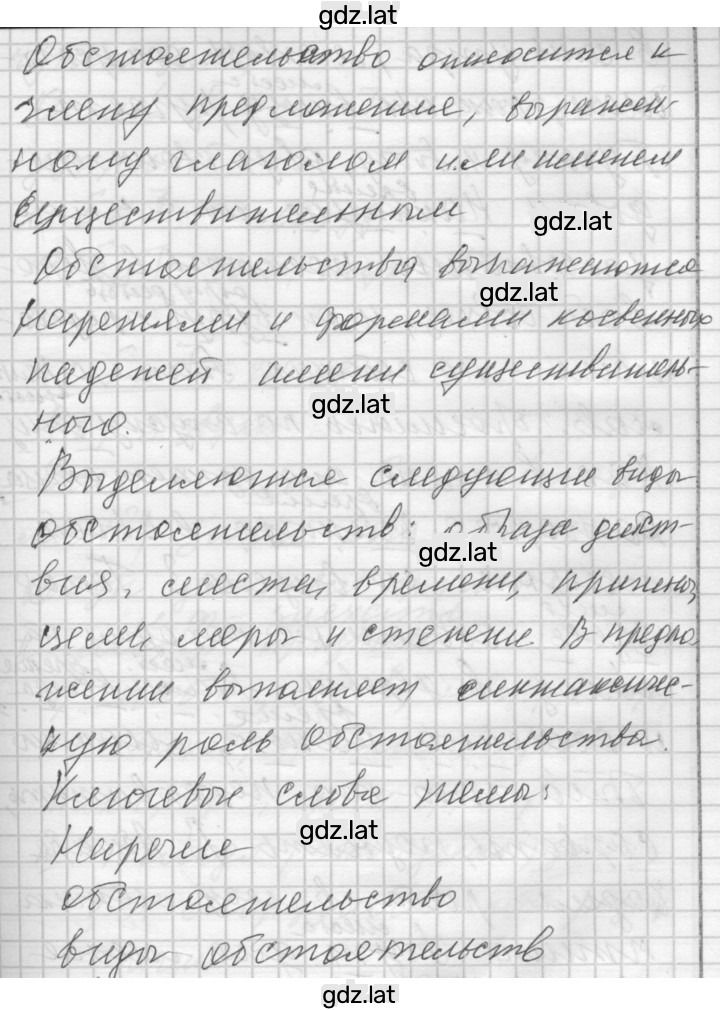 gdz.lat
Обстоятельство относится к
члену предложения, выражен-
ному глаголом или именем
существительным
gdz.lat
Обстоятельства выражаются
gdz.lat
наречиями и формами косвенных
падежей имени существитель-
gdz.lat
ного.
Выделяются следующие виды
обстоятельств: образа дейст-
gdz.lat
вия, места, времени, причины,
цели, меры и степени. В предло
жении выполняет синтаксиче-
скую роль обстоятельства.
Ключевые слова темы:
gdz.lat
Наречие
обстоятельство
виды обстоятельств
gdz.lat